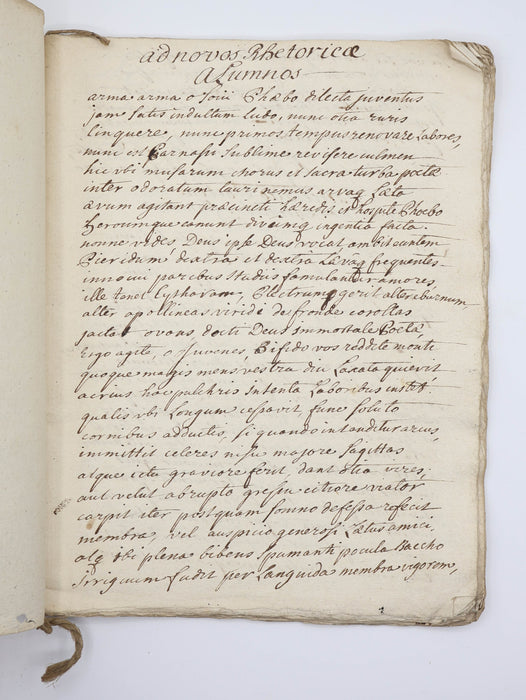 ad novos Rhetoricæ
Alumnos
arma arma o Soiii Phæbo dilecta juventus
jam satis indultum ludo, nunc otia ruris
linquere, nunc primos tempus renovare labores,
nunc est Parnassi sublime revisere culmen
hic ubi musarum chorus et sacra turba poetæ
inter odoratum lauri nemus arvaq. Læta
ævum agitant præcincti hæredis et hospite Phœbo
Heroumque canunt divûmq. ingentia facta
nonne vides Deus ipse Deus vocat ambit euntem
Pieridum dextra et dextra Lævaq frequentes
innocui paribus studiis famulantur amores,
ille tenet Cytharam, Plectrumq gerit alter eburnum,
alter apollineas viridi de fronde corollas
jactat ovans docti Deus immortale Poetæ,
Ergo agite, o juvenes, Bifido vos reddite monti
quoque magis mens vestra diu Laxata quievit
acrius hoc pulchris intenta Laboribus instet.
qualis ubi Longum cessavit fune soluto
cornibus adductis, si quando intenditur arcus,
immittit celeres nisu majore sagittas
atque ictu graviore ferit, dant otia vires,
aut velut abrupto gressu citiore viator
carpit iter postquam somno defessa refecit
membra, vel auspicio generosi Lætus amici,
atq ibi plena bibens spumanti pocula Baccho
irriguum fudit per Languida membra vigorem,